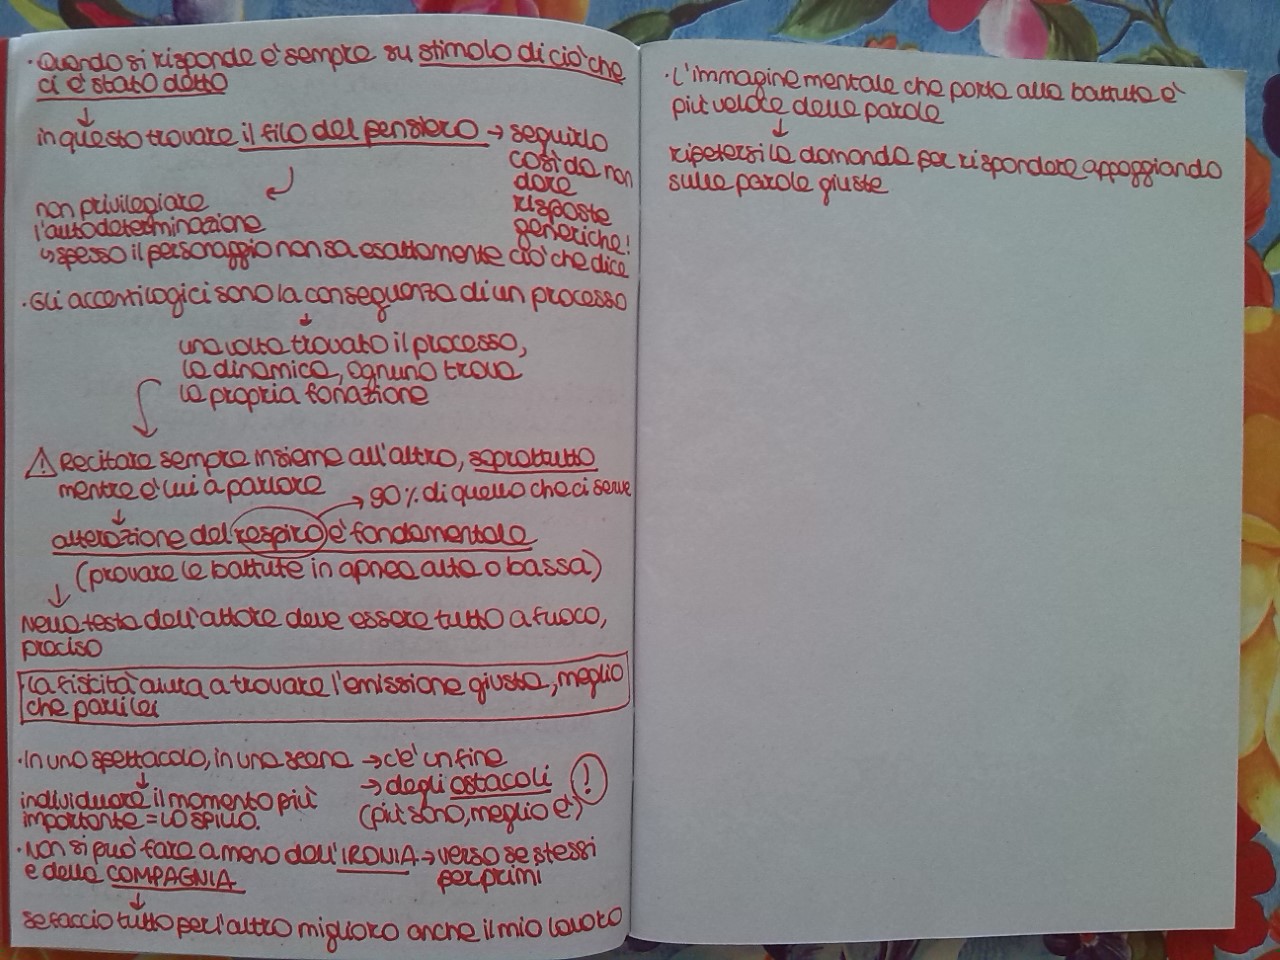 · Quando si risponde è sempre su stimolo di ciò che
ci è stato detto
↓
in questo trovare il filo del pensiero → seguirlo
così da non
dare
risposte
generiche!
non privilegiare
l'autodeterminazione
↳ spesso il personaggio non sa esattamente ciò che dice
· Gli accenti logici sono la conseguenza di un processo
↓
una volta trovato il processo,
la dinamica, ognuno trova
la propria fonazione
⚠ Recitare sempre insieme all'altro, soprattutto
mentre è lui a parlare
→ 90% di quello che ci serve
↓
alterazione del respiro è fondamentale
(provare le battute in apnea alta o bassa)
↓
Nella testa dell'attore deve essere tutto a fuoco,
preciso
La fisicità aiuta a trovare l'emissione giusta, meglio
che parli lei
· In uno spettacolo, in una scena → c'è un fine
→ degli ostacoli
(più sono, meglio è) !
↓
individuare il momento più
importante = LO SPILLO.
· Non si può fare a meno dell'IRONIA → verso se stessi
per primi
e della COMPAGNIA
↓
se faccio tutto per l'altro miglioro anche il mio lavoro
· L'immagine mentale che porta alla battuta è
più veloce delle parole
↓
ripetersi la domanda per rispondere appoggiando
sulle parole giuste